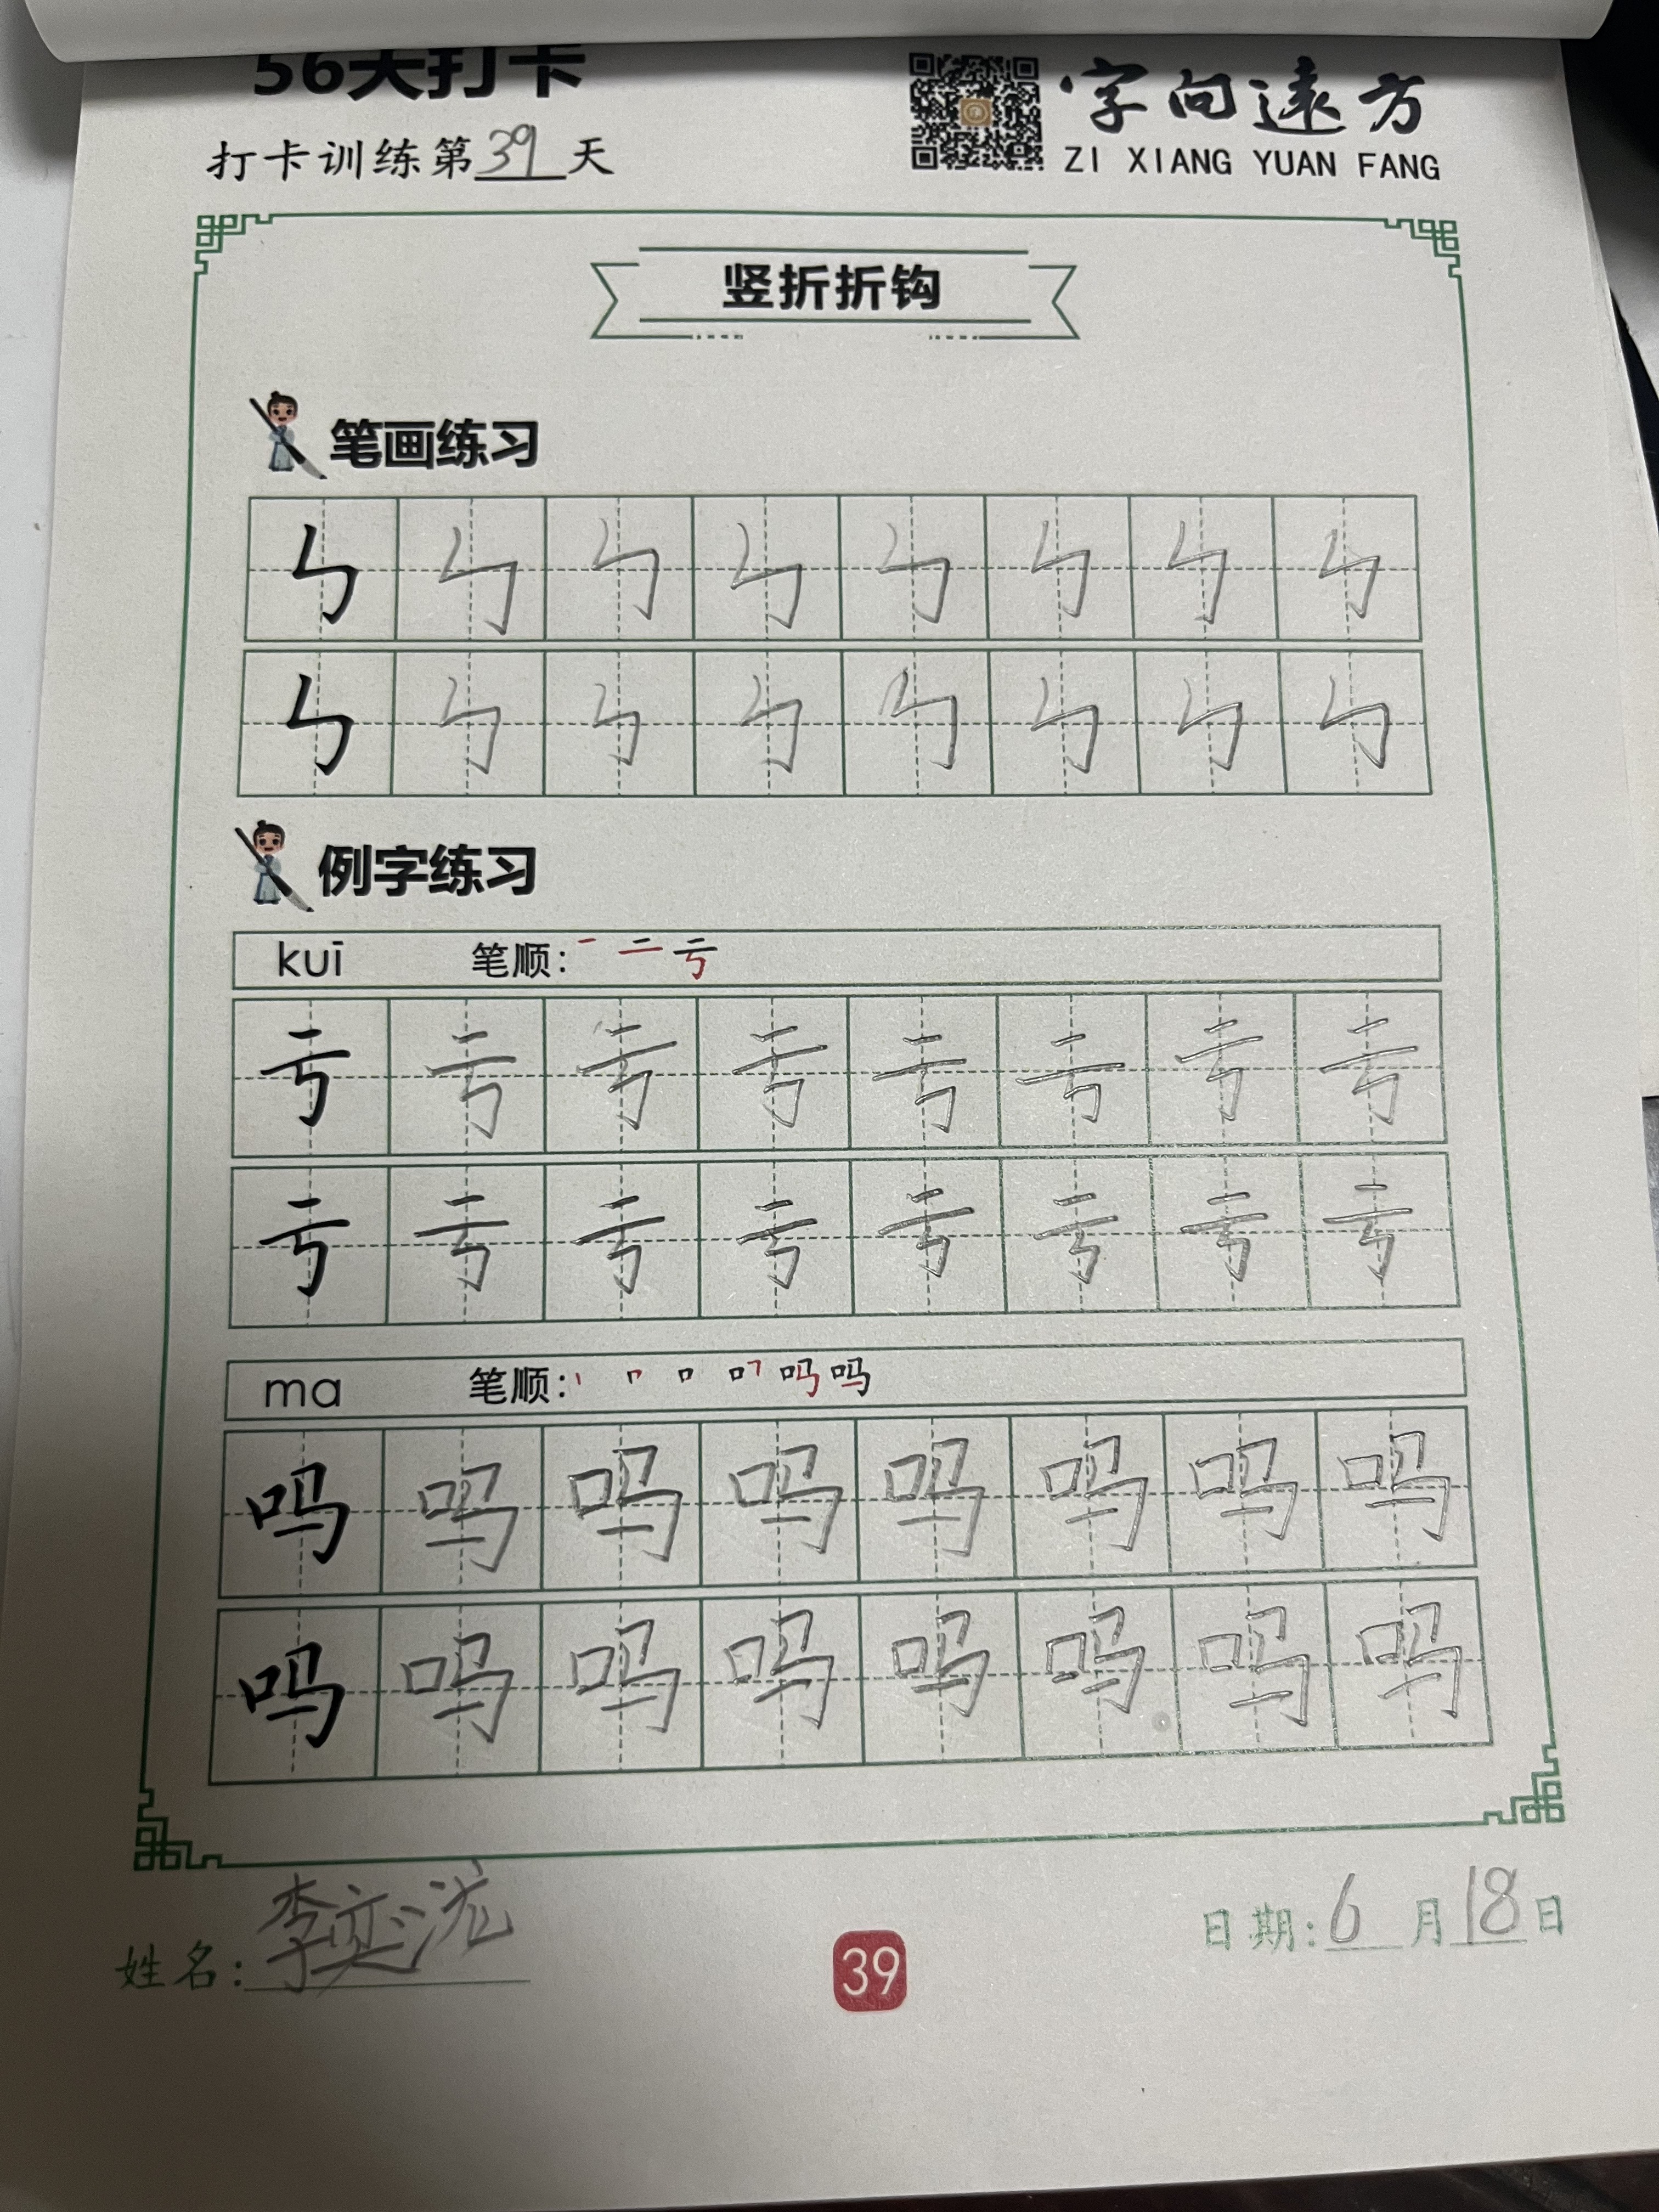 56天打卡
字向遠方
打卡训练第39天
ZI XIANG YUAN FANG
竖折折钩
笔画练习
ㄣ ㄣ ㄣ ㄣ ㄣ ㄣ ㄣ ㄣ
ㄣ ㄣ ㄣ ㄣ ㄣ ㄣ ㄣ ㄣ
例字练习
kuī 笔顺: 一 二 亏
亏 亏 亏 亏 亏 亏 亏 亏
亏 亏 亏 亏 亏 亏 亏 亏
ma 笔顺: 吗 吗
吗 吗 吗 吗 吗 吗 吗 吗
吗 吗 吗 吗 吗 吗 吗 吗
姓名: 李奕
日期: 6月18日
39